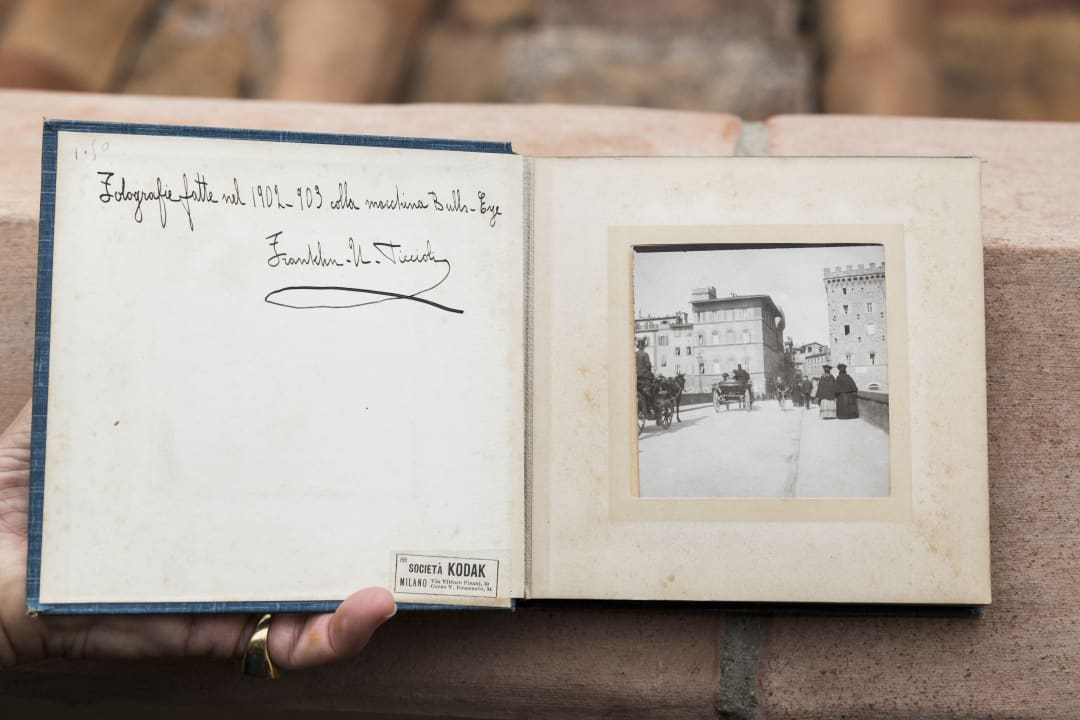 1.50
Fotografie fatte nel 1902-903 colla macchina Bulls-Eye
Franklin-
SOCIETÀ KODAK
MILANO Via Vittore Pisani, 10
Corso V. Emanuele, 34